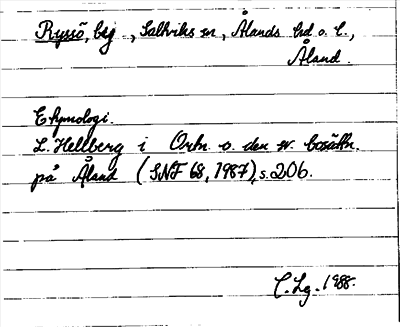 Ryssö, by , Saltviks sn, Ålands hd o. l.,
Åland.
Etymologi.
L. Hellberg i Ortn. o. den sv. bosättn.
på Åland (SNF 68, 1987), s. 206.
C. Lg. 1988.